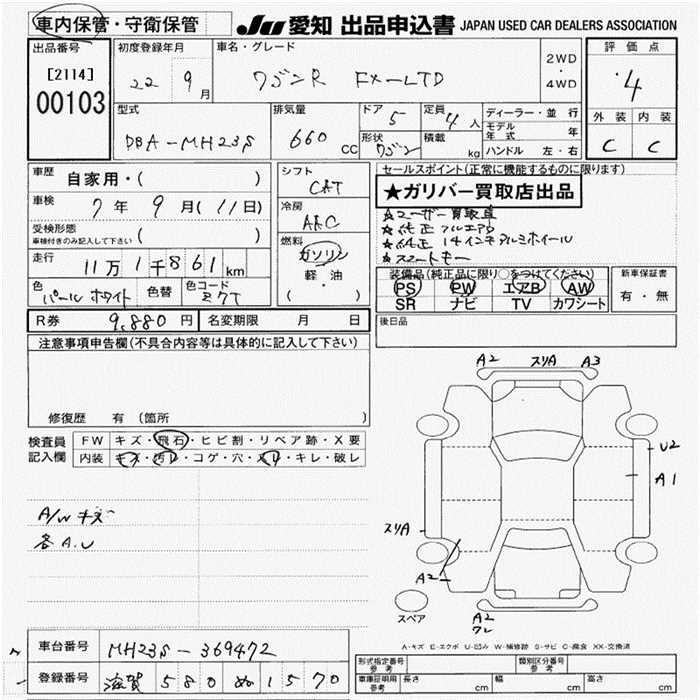 車内保管・守衛保管
JU 愛知 出品申込書 JAPAN USED CAR DEALERS ASSOCIATION
出品番号
[2114]
00103
初度登録年月
22 9月
車名・グレード
ワゴンR FX-LTD
2WD
・
4WD
評価点
4
外装 内装
C C
型式
DBA-MH23S
排気量
660 CC
ドア 5
形状 ワゴン
定員 4人
積載 kg
ディーラー・並行
モデル年式 年
ハンドル 左・右
車歴 自家用・( )
車検 7年 9月(11日)
受検形態
車検付きのみ記入して下さい ( )
走行 11万1千861km
色 パールホワイト 色替 色コード Z7T
シフト CAT
冷房 AAC
燃料
ガソリン
軽油
( ・ )
セールスポイント(正常に機能するものに限ります)
★ガリバー買取店出品
★ユーザー買取車
★純正フルエアロ
★純正14インチアルミホイール
★スマートキー
装備品(純正品に限り○をつけてください)
PS PW エアB AW
SR ナビ TV カワシート
新車保証書
有・無
後日品
R券 9,880円 名変期限 月 日
注意事項申告欄(不具合内容等は具体的に記入して下さい)
修復歴 有(箇所 )
検査員記入欄
FW キズ・飛石・ヒビ割・リペア跡・X要
内装 キズ・汚レ・コゲ・穴・スレ・キレ・破レ
A/Wキズ
各A.U
A2 スリA A3
U2
A1
スリA
A2
A2
ワレ
スペア
A-キズ E-エクボ U-凹み W-補修跡 S-サビ C-腐食 XX-交換済
車台番号 MH23S-369472
登録番号 滋賀 580 ぬ 1570
形式指定番号
参考
類別区分番号
参考
車庫証明用
参考
長さ cm 幅 cm 高さ cm